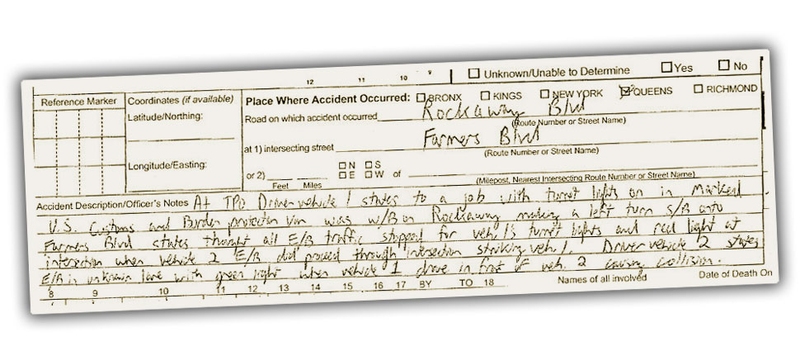 12 11 10 9
Unknown/Unable to Determine Yes No
Reference Marker
Coordinates (if available)
Latitude/Northing:
Longitude/Easting:
Place Where Accident Occurred: BRONX KINGS NEW YORK QUEENS RICHMOND
Road on which accident occurred Rockaway Blvd
(Route Number or Street Name)
at 1) intersecting street Farmers Blvd
(Route Number or Street Name)
or 2) N S E W of
Feet Miles
(Milepost, Nearest Intersecting Route Number or Street Name)
Accident Description/Officer's Notes At TPO Driver vehicle 1 states to a job with turret lights on in Marked
U.S. Customs and Border protection Van was W/B on Rockaway making a left turn S/B onto
Farmers Blvd states thought all E/B traffic stopped for veh 1's turret lights and red light at
intersection when vehicle 2 E/B did proceed through intersection striking veh 1. Driver vehicle 2 states
E/B in unknown lane with green light when vehicle 1 drove in front of veh. 2 causing collision.
8 9 10 11 12 13 14 15 16 17 BY TO 18 Names of all involved Date of Death On